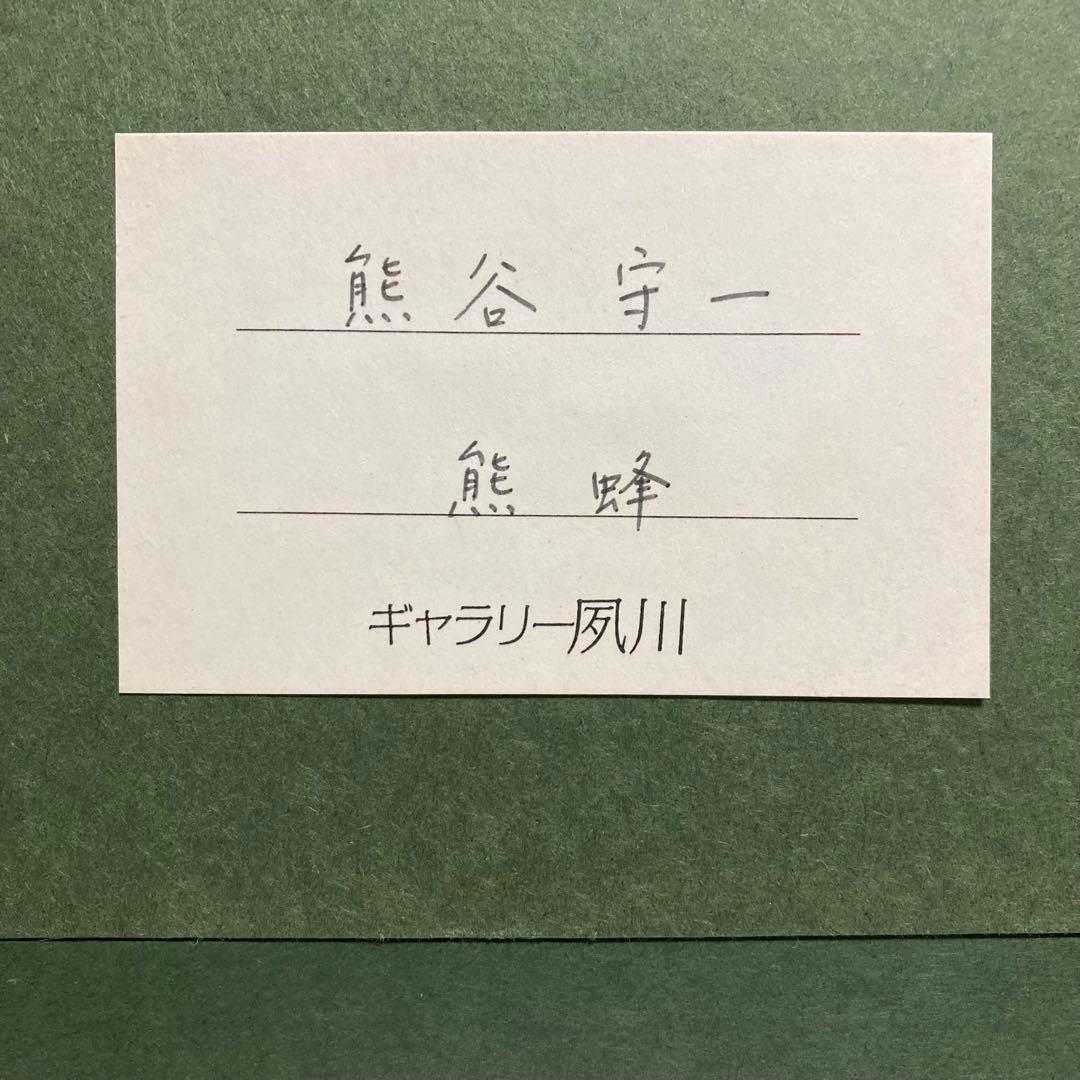 熊谷 守一
熊蜂
ギャラリー夙川